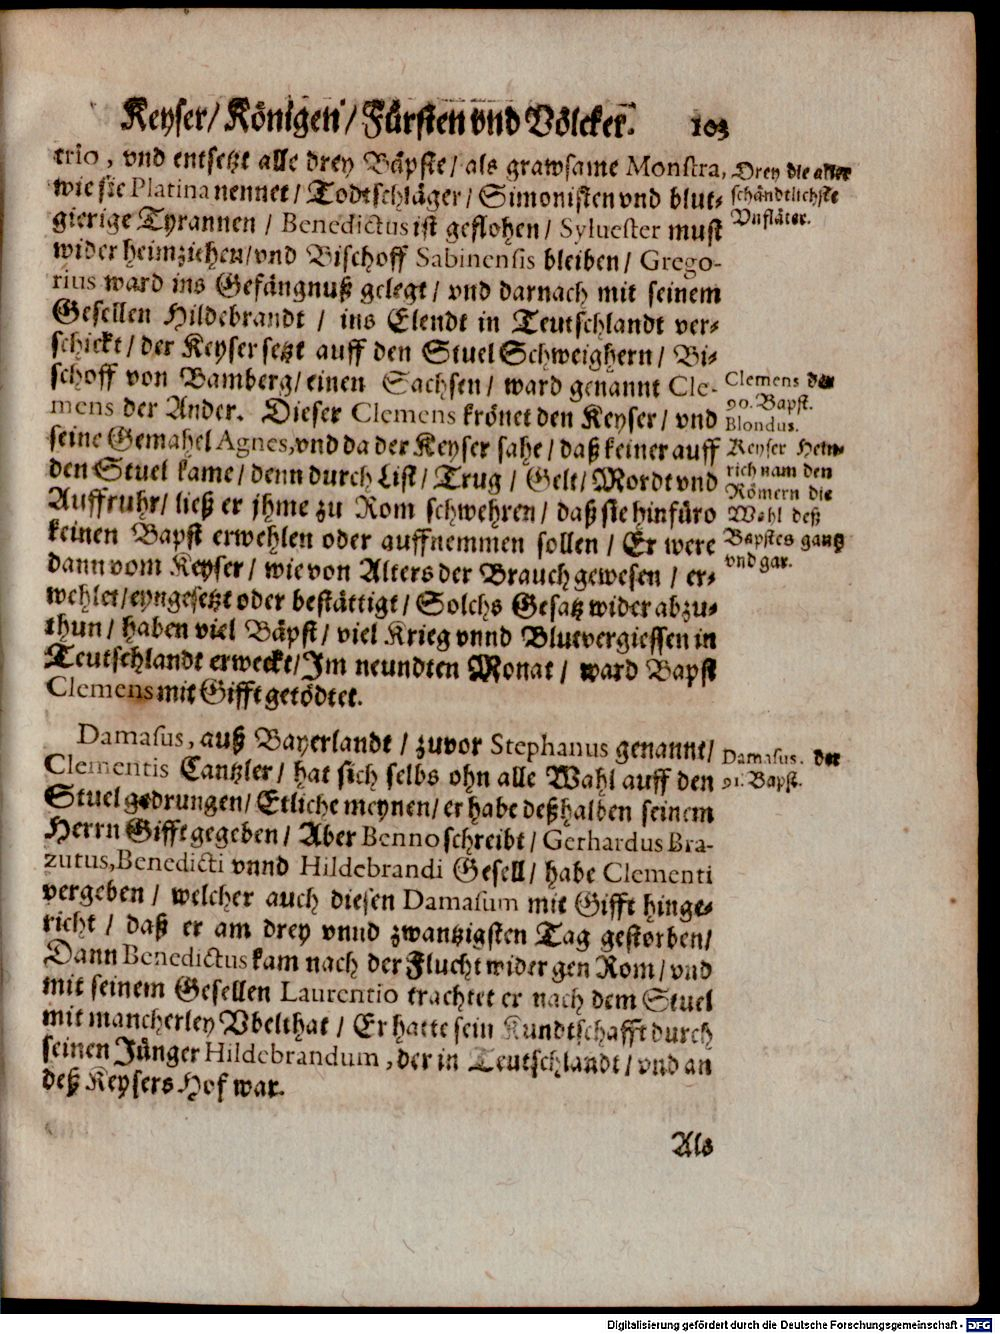 Keyser/ Königen/ Fürsten vnd Völcker. 103
trio, vnd entsetzt alle drey Bäpste/ als grawsame Monstra,
wie sie Platina nennet/ Todtschläger/ Simonisten vnd blut-
gierige Tyrannen / Benedictus ist geflohen/ Syluester must
wider heimziehen/vnd Bischoff Sabinensis bleiben/ Grego-
rius ward ins Gefängnuß gelegt/ vnd darnach mit seinem
Gesellen Hildebrandt / ins Elendt in Teutschlandt ver-
schickt/ der Keyser setzt auff den Stuel Schweighern/ Bi-
schoff von Bamberg/ einen Sachsen/ ward genannt Cle-
mens der Ander. Dieser Clemens krönet den Keyser/ vnd
seine Gemahel Agnes, vnd da der Keyser sahe/ daß keiner auff
den Stuel kame/ denn durch List/ Trug / Gelt/ Mordt vnd
Auffruhr/ ließ er jhme zu Rom schwehren/ daß sie hinfüro
keinen Bapst erwehlen oder auffnemmen sollen/ Er were
dann vom Keyser/ wie von Alters der Brauch gewesen/ er-
wehlet/eyngesetzt oder bestättigt/ Solchs Gesatz wider abzu-
thun/ haben viel Bäpst/ viel Krieg vnnd Blutvergiessen in
Teutschlandt erweckt/Im neundten Monat/ ward Bapst
Clemens mit Gifft getödtet.
Drey die aller
schändtlichste
Vnfläter.
Clemens der
90. Bapst.
Blondus.
Keyser Hein-
rich nam den
Römern die
Wahl deß
Bapstes gantz
vnd gar.
Damasus, auß Bayerlandt / zuvor Stephanus genannt/
Clementis Cantzler/ hat sich selbs ohn alle Wahl auff den
Stuel gedrungen/ Etliche meynen/ er habe deßhalben seinem
Herrn Gifft gegeben/ Aber Benno schreibt/ Gerhardus Bra-
zutus, Benedicti vnnd Hildebrandi Gesell/ habe Clementi
vergeben/ welcher auch diesen Damasum mit Gifft hinge-
richt/ daß er am drey vnnd zwantzigsten Tag gestorben/
Dann Benedictus kam nach der Flucht wider gen Rom/ vnd
mit seinem Gesellen Laurentio trachtet er nach dem Stuel
mit mancherley Vbelthat/ Er hatte sein Kundtschafft durch
seinen Jünger Hildebrandum, der in Teutschlandt/ vnd an
deß Keysers Hof war.
Damasus. der
91. Bapst.
Als
Digitalisierung gefördert durch die Deutsche Forschungsgemeinschaft - DFG